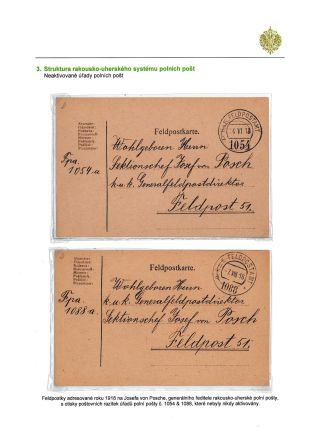 3. Struktura rakousko-uherského systému polních pošt
Neaktivované úřady polních pošt
Feldpostkarte.
Fpa.
1054a
Wohlgeboren Herrn
Sektionschef Josef von Posch
k.u.k. Generalfeldpostdirektor
Feldpost 51.
K.u.K. FELDPOSTAMT
4 VI 18
1054
Feldpostkarte.
Fpa.
1088a
Wohlgeboren Herrn
k.u.k. Generalfeldpostdirektor
Sektionschef Josef von Posch
Feldpost 51.
1088
Feldpostky adresované roku 1918 na Josefa von Posche, generálního ředitele rakousko-uherské polní pošty,
s otisky poštovních razítek úřadů polní pošty č. 1054 & 1088, které nebyly nikdy aktivovány.